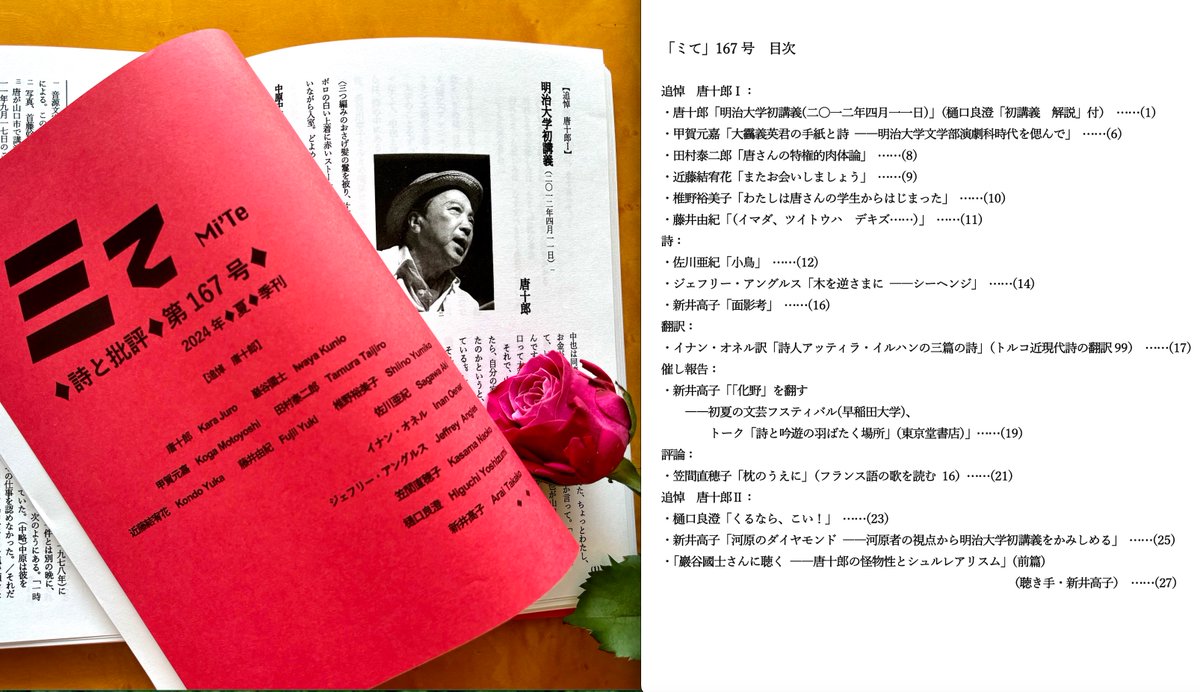 ミて Mi'Te
◆詩と批評◆第167号◆
2024年◆夏◆季刊
【追悼 唐十郎】
唐十郎 Kara Juro 巖谷國士 Iwaya Kunio
甲賀元嘉 Koga Motoyoshi 田村泰二郎 Tamura Taijiro
近藤結宥花 Kondo Yuka 藤井由紀 Fujii Yuki 椎野裕美子 Shiino Yumiko
佐川亜紀 Sagawa Aki
イナン・オネル Inan Oener
ジェフリー・アングルス Jeffrey Angles
笠間直穂子 Kasama Naoko
樋口良澄 Higuchi Yoshizumi
新井高子 Arai Takako
【追悼 唐十郎Ⅰ】
明治大学初講義(二〇一二年四月一一日)
唐十郎
〈三つ編みのおさげ髪の鬘を被り、
ボロの白い上着に赤いスト
いながら入室。どよ
「ミて」167号 目次
追悼 唐十郎Ⅰ：
・唐十郎「明治大学初講義(二〇一二年四月一一日)」(樋口良澄「初講義 解説」付) ……(1)
・甲賀元嘉「大靏義英君の手紙と詩 ——明治大学文学部演劇科時代を偲んで」 ……(6)
・田村泰二郎「唐さんの特権的肉体論」 ……(8)
・近藤結宥花「またお会いしましょう」 ……(9)
・椎野裕美子「わたしは唐さんの学生からはじまった」 ……(10)
・藤井由紀「(イマダ、ツイトウハ デキズ……)」 ……(11)
詩：
・佐川亜紀「小鳥」 ……(12)
・ジェフリー・アングルス「木を逆さまに ——シーヘンジ」 ……(14)
・新井高子「面影考」 ……(16)
翻訳：
・イナン・オネル訳「詩人アッティラ・イルハンの三篇の詩」(トルコ近現代詩の翻訳 99) ……(17)
催し報告：
・新井高子「「化野」を翻す
——初夏の文芸フスティバル(早稲田大学)、
トーク「詩と吟遊の羽ばたく場所」(東京堂書店)」……(19)
評論：
・笠間直穂子「枕のうえに」(フランス語の歌を読む 16) ……(21)
追悼 唐十郎Ⅱ：
・樋口良澄「くるなら、こい！」 ……(23)
・新井高子「河原のダイヤモンド ——河原者の視点から明治大学初講義をかみしめる」 ……(25)
・「巖谷國士さんに聴く ——唐十郎の怪物性とシュルレアリスム」(前篇)
(聴き手・新井高子) ……(27)